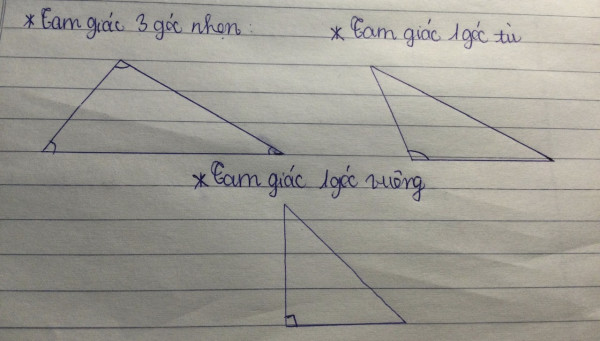 * Tam giác 3 góc nhọn:
* Tam giác 1 góc tù
* Tam giác 1 góc vuông